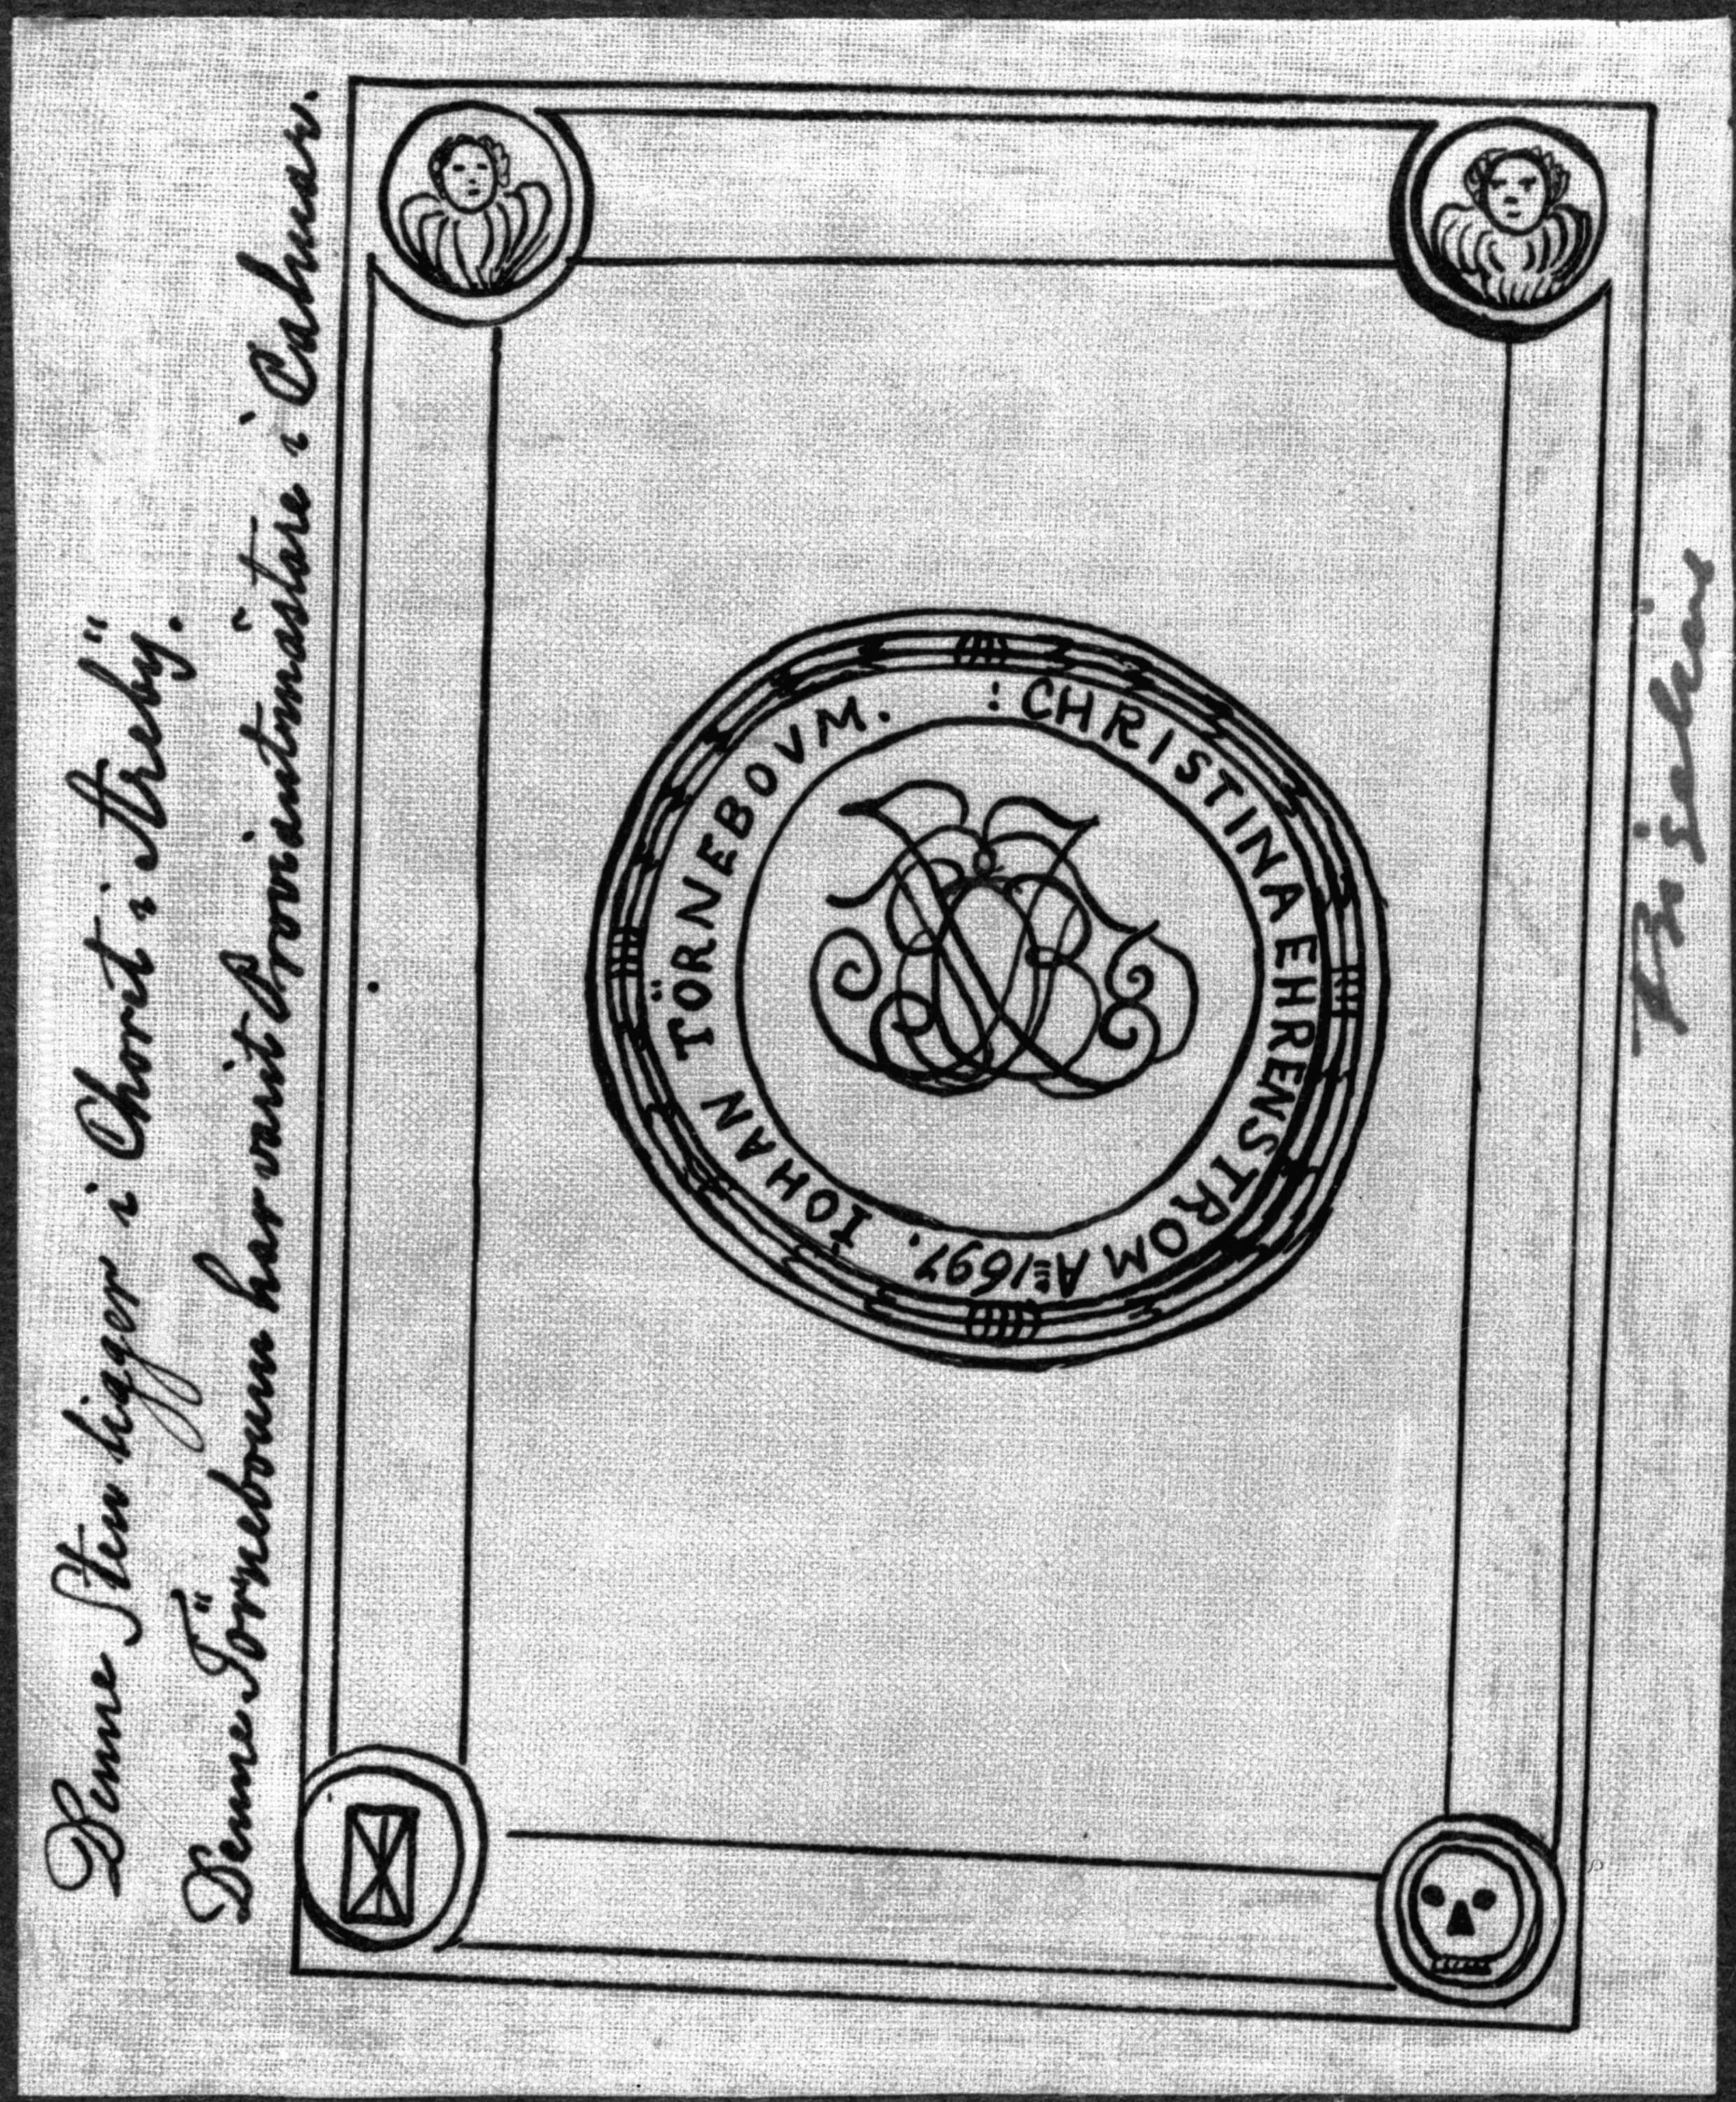 Denne Sten ligger i Choret i Åreby.
Denne Törneboum har varit Proviantmästare i Calmar.
IOHAN TÖRNEBOVM. : CHRISTINA EHRENSTROM Aº 1697.